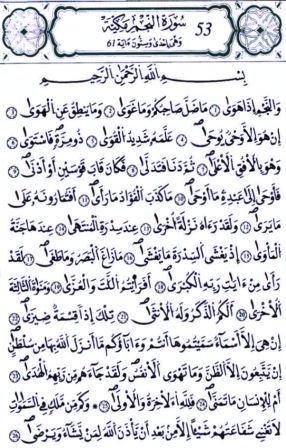 سُورَةُ النَّجْمِ مَكِّيَّة
53
وَهِيَ اِحْدَى وَسِتُّونَ اٰيَة 61
بِسْمِ اللّٰهِ الرَّحْمٰنِ الرَّحِيمِ
وَالنَّجْمِ اِذَا هَوٰى ١ مَا ضَلَّ صَاحِبُكُمْ وَمَا غَوٰى ٢ وَمَا يَنْطِقُ عَنِ الْهَوٰى ٣
اِنْ هُوَ اِلَّا وَحْىٌ يُوحٰى ٤ عَلَّمَهُ شَدِيدُ الْقُوٰى ٥ ذُو مِرَّةٍ فَاسْتَوٰى ٦
وَهُوَ بِالْاُفُقِ الْاَعْلٰى ٧ ثُمَّ دَنَا فَتَدَلّٰى ٨ فَكَانَ قَابَ قَوْسَيْنِ اَوْ اَدْنٰى ٩
فَاَوْحٰى اِلٰى عَبْدِهِ مَا اَوْحٰى ١٠ مَا كَذَبَ الْفُؤَادُ مَا رَاٰى ١١ اَفَتُمَارُونَهُ عَلٰى
مَا يَرٰى ١٢ وَلَقَدْ رَاٰهُ نَزْلَةً اُخْرٰى ١٣ عِنْدَ سِدْرَةِ الْمُنْتَهٰى ١٤ عِنْدَهَا جَنَّةُ
الْمَاْوٰى ١٥ اِذْ يَغْشَى السِّدْرَةَ مَا يَغْشٰى ١٦ مَا زَاغَ الْبَصَرُ وَمَا طَغٰى ١٧ لَقَدْ
رَاٰى مِنْ اٰيَاتِ رَبِّهِ الْكُبْرٰى ١٨ اَفَرَاَيْتُمُ اللَّاتَ وَالْعُزّٰى ١٩ وَمَنٰوةَ الثَّالِثَةَ
الْاُخْرٰى ٢٠ اَلَكُمُ الذَّكَرُ وَلَهُ الْاُنْثٰى ٢١ تِلْكَ اِذًا قِسْمَةٌ ضِيزٰى ٢٢
اِنْ هِىَ اِلَّا اَسْمَاءٌ سَمَّيْتُمُوهَا اَنْتُمْ وَاٰبَاؤُكُمْ مَا اَنْزَلَ اللّٰهُ بِهَا مِنْ سُلْطَانٍ
اِنْ يَتَّبِعُونَ اِلَّا الظَّنَّ وَمَا تَهْوَى الْاَنْفُسُ وَلَقَدْ جَاءَهُمْ مِنْ رَبِّهِمُ الْهُدٰى ٢٣
اَمْ لِلْاِنْسَانِ مَا تَمَنّٰى ٢٤ فَلِلّٰهِ الْاٰخِرَةُ وَالْاُولٰى ٢٥ وَكَمْ مِنْ مَلَكٍ فِى السَّمٰوَاتِ
لَا تُغْنِى شَفَاعَتُهُمْ شَيْئًا اِلَّا مِنْ بَعْدِ اَنْ يَاْذَنَ اللّٰهُ لِمَنْ يَشَاءُ وَيَرْضٰى ٢٦